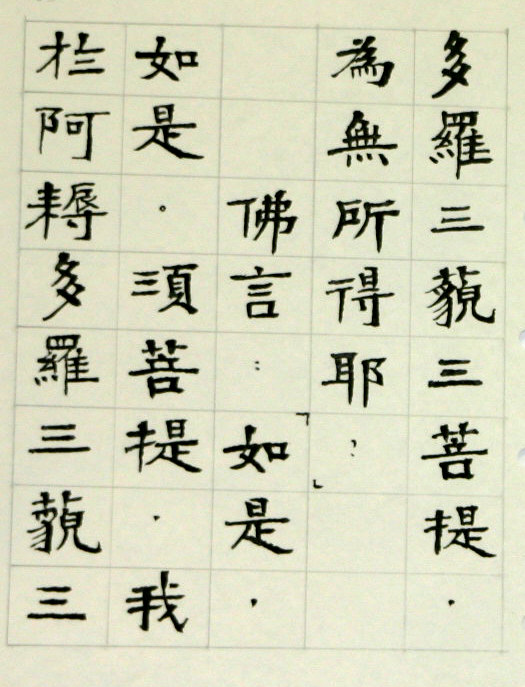 多羅三藐三菩提．
為無所得耶？」
佛言：「如是．
如是。須菩提．我
於阿耨多羅三藐三